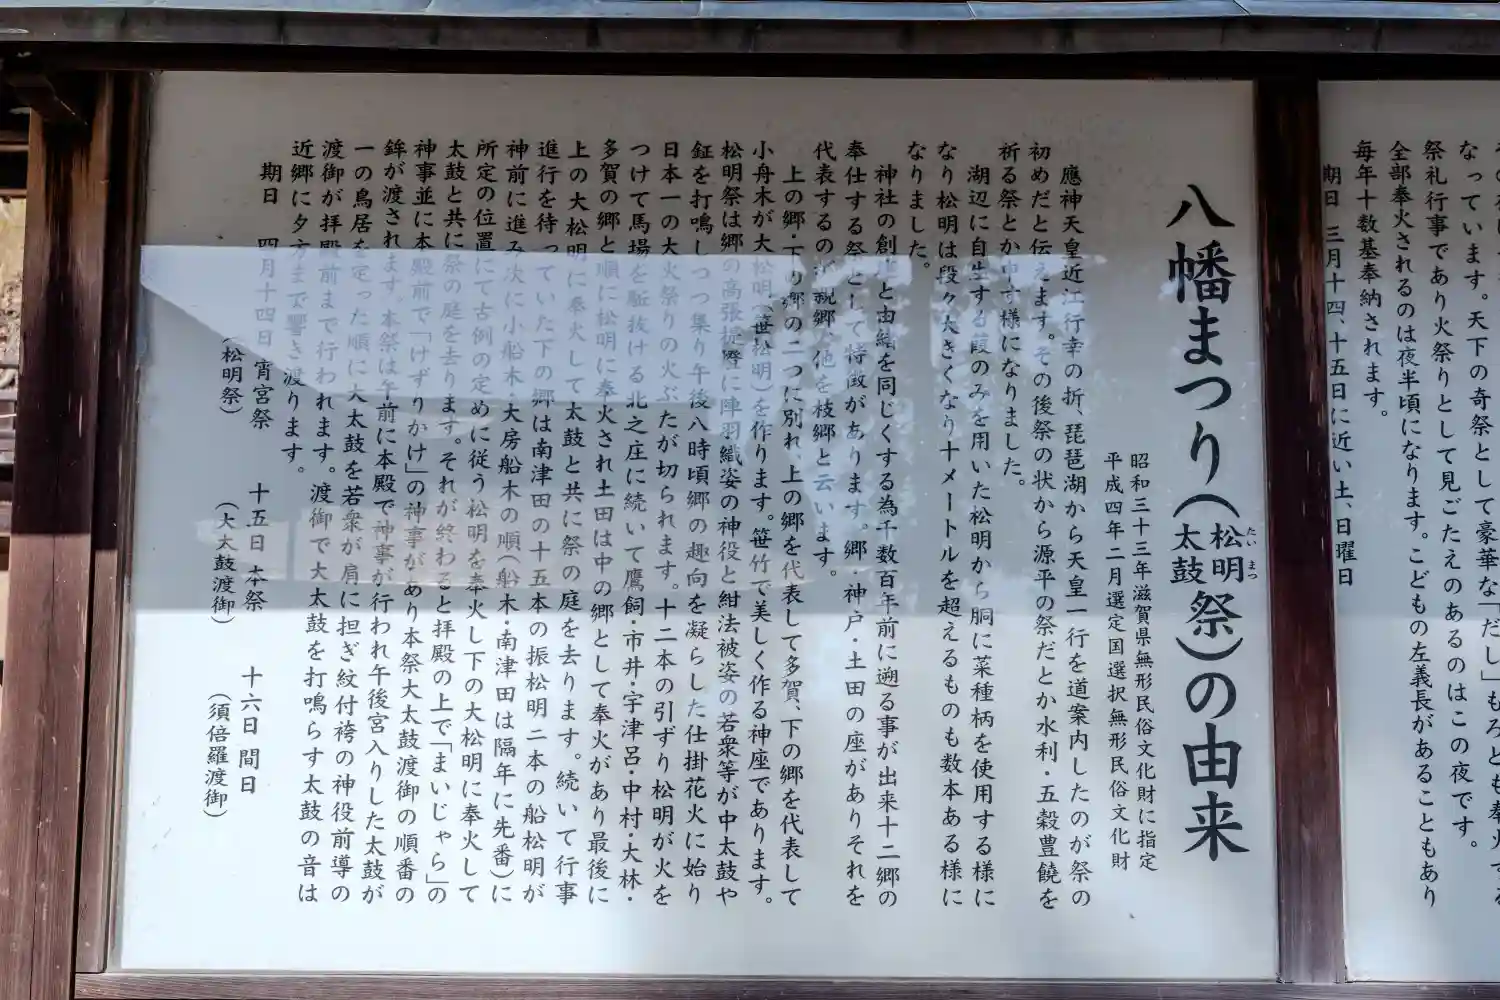 なっています。天下の奇祭として豪華な「だし」もろとも奉火する
祭礼行事であり火祭りとして見ごたえのあるのはこの夜です。
全部奉火されるのは夜半頃になります。こどもの左義長があることもあり
毎年十数基奉納されます。
期日 三月十四、十五日に近い土、日曜日
八幡まつり(松明太鼓祭)の由来
たいまつ
昭和三十三年滋賀県無形民俗文化財に指定
平成四年二月選定国選択無形民俗文化財
應神天皇近江行幸の折、琵琶湖から天皇一行を道案内したのが祭の
初めだと伝えます。その後祭の状から源平の祭だとか水利・五穀豊饒を
祈る祭とか申す様になりました。
湖辺に自生する葭のみを用いた松明から胴に菜種柄を使用する様に
なり松明は段々大きくなり十メートルを超えるものも数本ある様に
なりました。
神社の創建と由緒を同じくする為千数百年前に遡る事が出来十二郷の
奉仕する祭として特徴があります。郷・神戸・土田の座がありそれを
代表するの親郷、他を枝郷と云います。
上の郷・下の郷の二つに別れ、上の郷を代表して多賀、下の郷を代表して
小舟木が大松明(笹松明)を作ります。笹竹で美しく作る神座であります。
松明祭は郷の高張提燈に陣羽織姿の神役と紺法被姿の若衆等が中太鼓や
鉦を打鳴しつつ集り午後八時頃郷の趣向を凝らした仕掛花火に始り
日本一の大火祭りの火ぶたが切られます。十二本の引ずり松明が火を
つけて馬場を駈抜ける北之庄に続いて鷹飼・市井・宇津呂・中村・大林・
多賀の郷と順に松明に奉火され土田は中の郷として奉火があり最後に
上の大松明に奉火して太鼓と共に祭の庭を去ります。続いて行事
進行を待っていた下の郷は南津田の十五本の振松明二本の船松明が
神前に進み次に小船木・大房船木の順(船木・南津田は隔年に先番)に
所定の位置にて古例の定めに従う松明を奉火し下の大松明に奉火して
太鼓と共に祭の庭を去ります。それが終わると拝殿の上で「まいじゃら」の
神事並に本殿前で「けずりかけ」の神事があり本祭大太鼓渡御の順番の
鉾が渡されます。本祭は午前に本殿で神事が行われ午後宮入りした太鼓が
一の鳥居を定った順に大太鼓を若衆が肩に担ぎ紋付袴の神役前導の
渡御が拝殿前まで行われます。渡御で大太鼓を打鳴らす太鼓の音は
近郷に夕方まで響き渡ります。
期日 四月十四日 宵宮祭 十五日 本祭 十六日 間日
(松明祭) (大太鼓渡御) (須倍羅渡御)